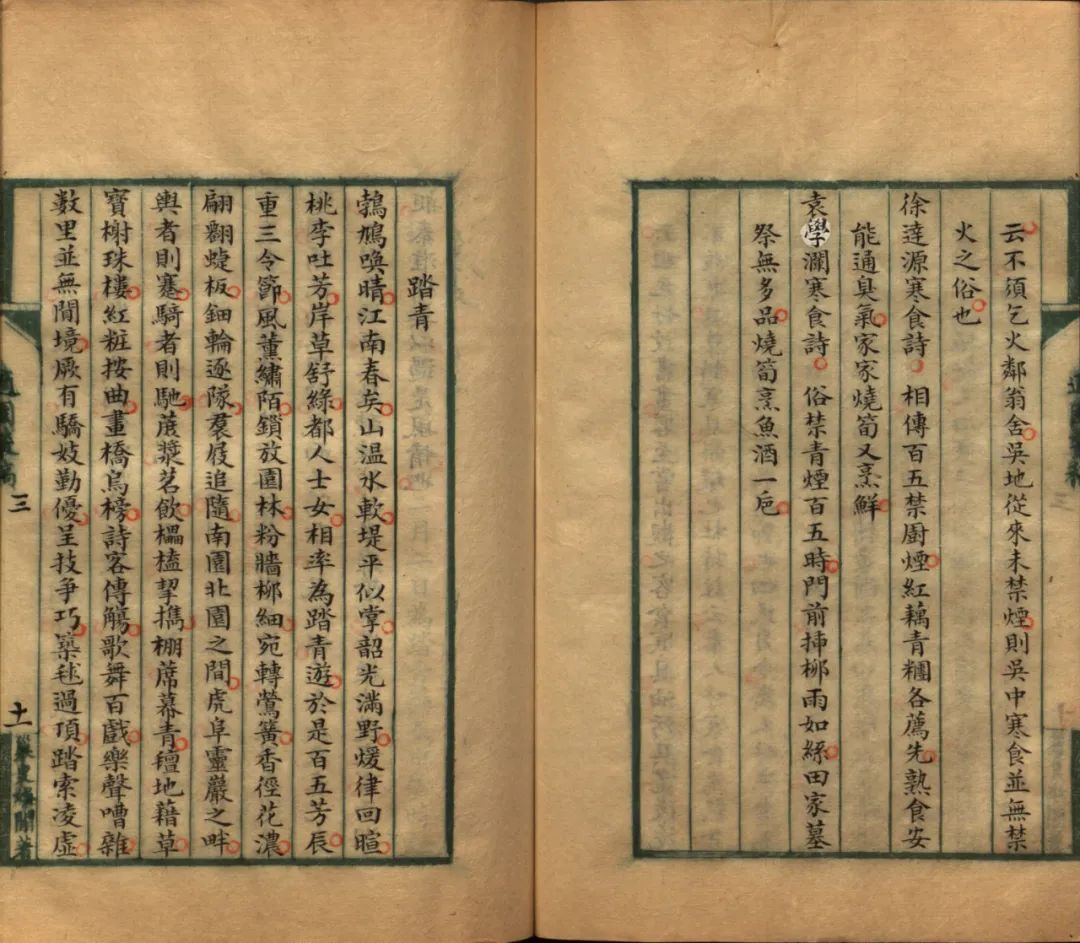 云不須乞火鄰翁舍吳地從來未禁煙則吳中寒食並無禁
火之俗也
徐達源寒食詩相傳百五禁厨煙紅藕青糰各薦先熟食安
能通臭氣家家燒筍又烹鮮
袁學瀾寒食詩俗禁青煙百五時門前揷栁雨如絲田家墓
祭無多品燒筍烹魚酒一巵
踏青
鵓鳩喚晴江南春矣山温水軟堤平似掌韶光滿野煖律回暄
桃李吐芳岸草舒綠都人士女相率為踏青遊於是百五芳辰
重三令節風薰繡陌鎖放園林粉牆栁細宛轉鶯簧香徑花濃
翩翻蜨板鈿輪逐隊裠屐追隨南園北園之間虎阜靈巖之畔
輿者則蹇騎者則馳蔗漿茗飲榼榼挈擕棚蓆幕青氊地藉草
寳榭珠樓紅粧按曲畫橋烏榜詩客傳觴歌舞百戲樂聲嘈雜
數里並無閒境厥有驕妓勤優呈技爭巧築毬過頂踏索凌虛
三
十一